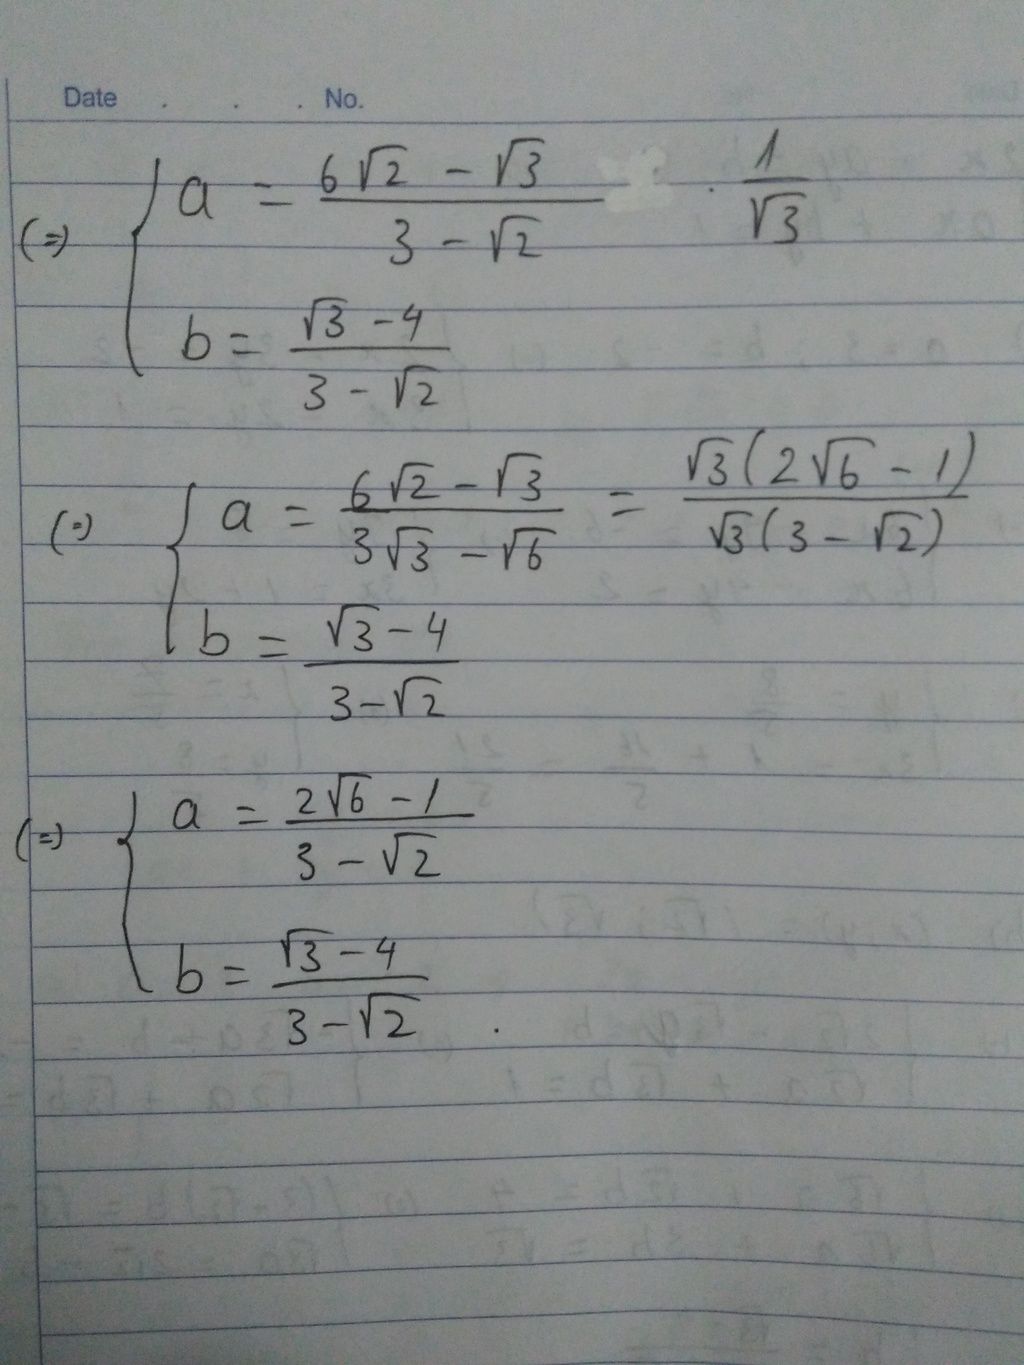 Date . . . No.
(=) { a = (6√2 - √3)/(3 - √2) . 1/√3
b = (√3 - 4)/(3 - √2)
(=) { a = (6√2 - √3)/(3√3 - √6) = √3(2√6 - 1)/√3(3 - √2)
b = (√3 - 4)/(3 - √2)
(=) { a = (2√6 - 1)/(3 - √2)
b = (√3 - 4)/(3 - √2) .